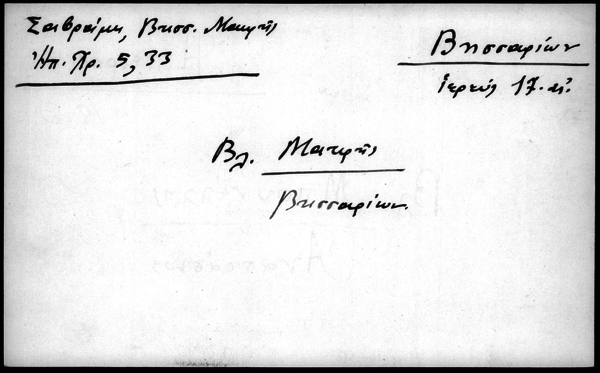 Σαβράμη, Βησσ. Μακρῆς
Ἠπ. Χρ. 5, 33
Βησσαρίων
ἱερεύς 17. αἰ.
Βλ. Μακρῆς
Βησσαρίων.